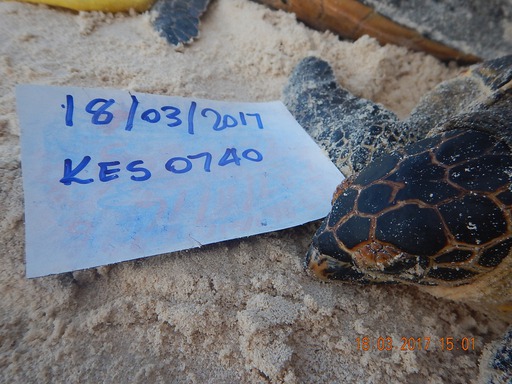 18/03/2017
KES 0740
18.03.2017 15:01